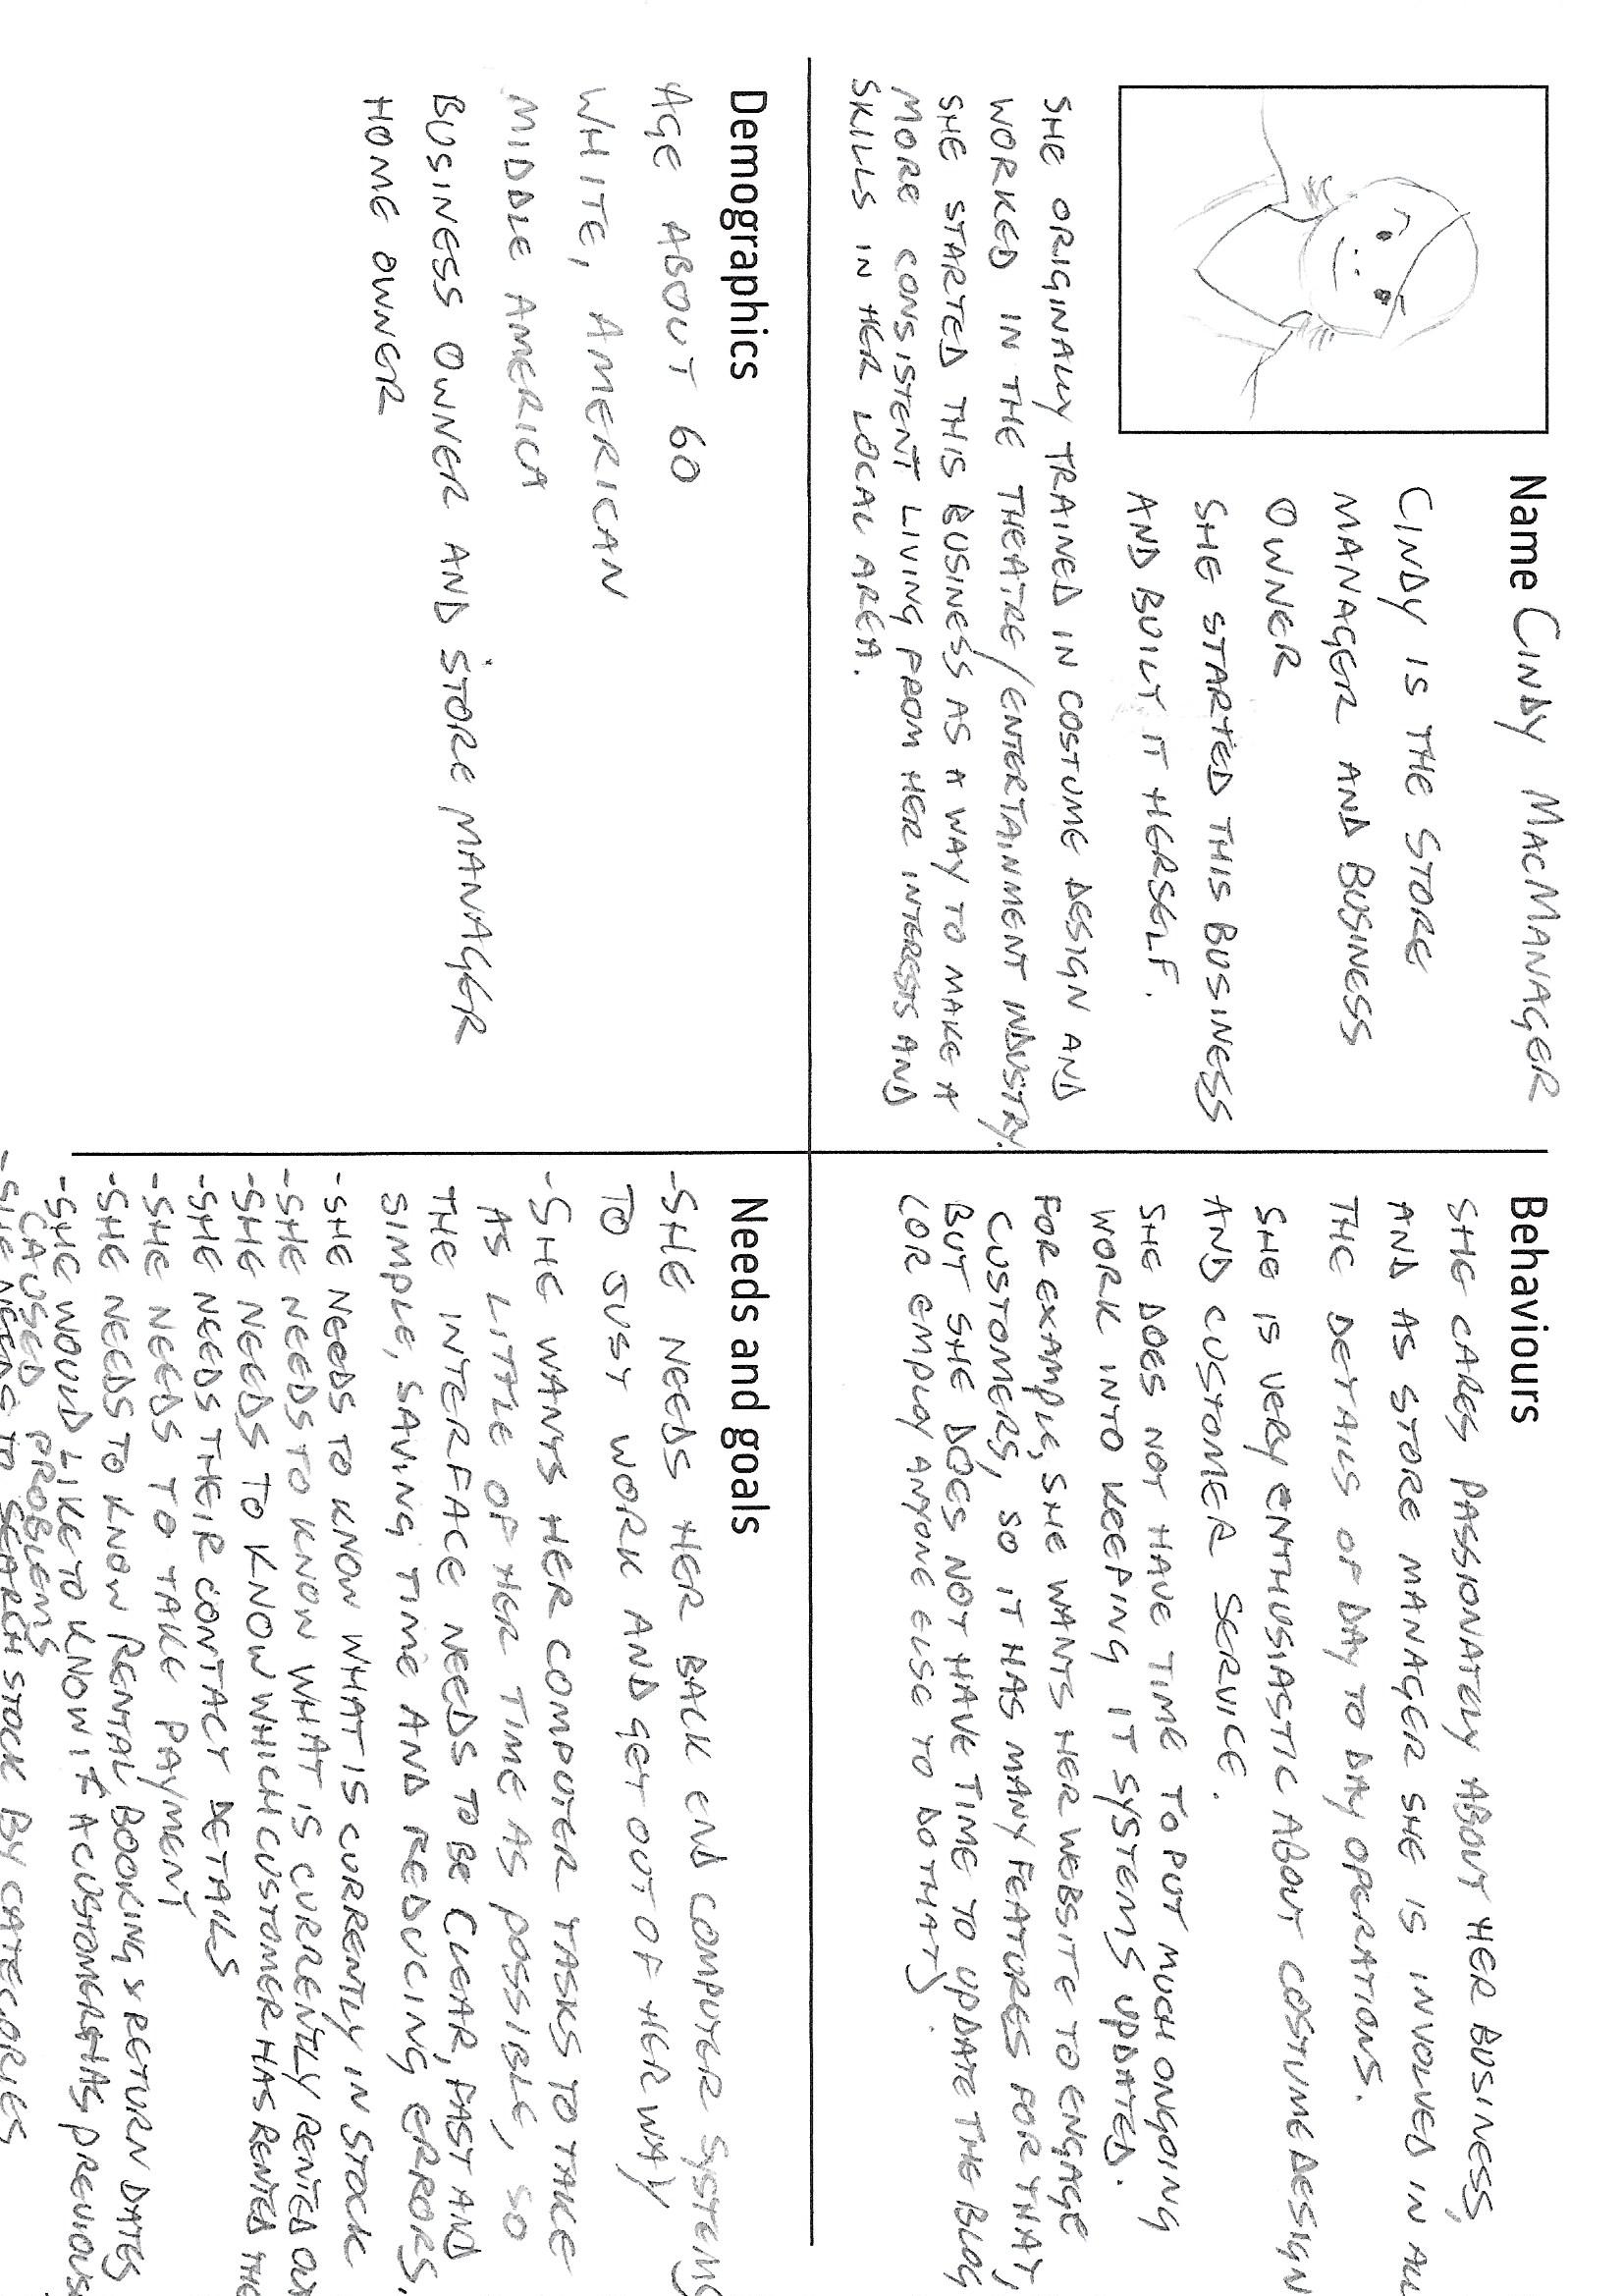 Name CINDY MACMANAGER
CINDY IS THE STORE
MANAGER AND BUSINESS
OWNER
SHE STARTED THIS BUSINESS
AND BUILT IT HERSELF.
SHE ORIGINALLY TRAINED IN COSTUME DESIGN AND
WORKED IN THE THEATRE/ENTERTAINMENT INDUSTRY.
SHE STARTED THIS BUSINESS AS A WAY TO MAKE A
MORE CONSISTENT LIVING FROM HER INTERESTS AND
SKILLS IN HER LOCAL AREA.
Behaviours
SHE CARES PASSIONATELY ABOUT HER BUSINESS,
AND AS STORE MANAGER SHE IS INVOLVED IN ALL
THE DETAILS OF DAY TO DAY OPERATIONS.
SHE IS VERY ENTHUSIASTIC ABOUT COSTUME DESIGN
AND CUSTOMER SERVICE.
SHE DOES NOT HAVE TIME TO PUT MUCH ONGOING
WORK INTO KEEPING IT SYSTEMS UPDATED.
FOR EXAMPLE, SHE WANTS HER WEBSITE TO ENGAGE
CUSTOMERS, SO IT HAS MANY FEATURES FOR THAT,
BUT SHE DOES NOT HAVE TIME TO UPDATE THE BLOG
(OR EMPLOY ANYONE ELSE TO DO THAT).
Demographics
AGE ABOUT 60
WHITE, AMERICAN
MIDDLE AMERICA
BUSINESS OWNER AND STORE MANAGER
HOME OWNER
Needs and goals
-SHE NEEDS HER BACK END COMPUTER SYSTEMS
TO JUST WORK AND GET OUT OF HER WAY
-SHE WANTS HER COMPUTER TASKS TO TAKE
AS LITTLE OF HER TIME AS POSSIBLE, SO
THE INTERFACE NEEDS TO BE CLEAR, FAST AND
SIMPLE, SAVING TIME AND REDUCING ERRORS.
-SHE NEEDS TO KNOW WHAT IS CURRENTLY IN STOCK
-SHE NEEDS TO KNOW WHAT IS CURRENTLY RENTED OUT
-SHE NEEDS TO KNOW WHICH CUSTOMER HAS RENTED
-SHE NEEDS THEIR CONTACT DETAILS
-SHE NEEDS TO TAKE PAYMENT
-SHE NEEDS TO KNOW RENTAL BOOKING & RETURN DATES
-SHE WOULD LIKE TO KNOW IF A CUSTOMER HAS PREVIOUS
CAUSED PROBLEMS
-SHE NEEDS TO SEARCH STOCK BY CATEGORIES